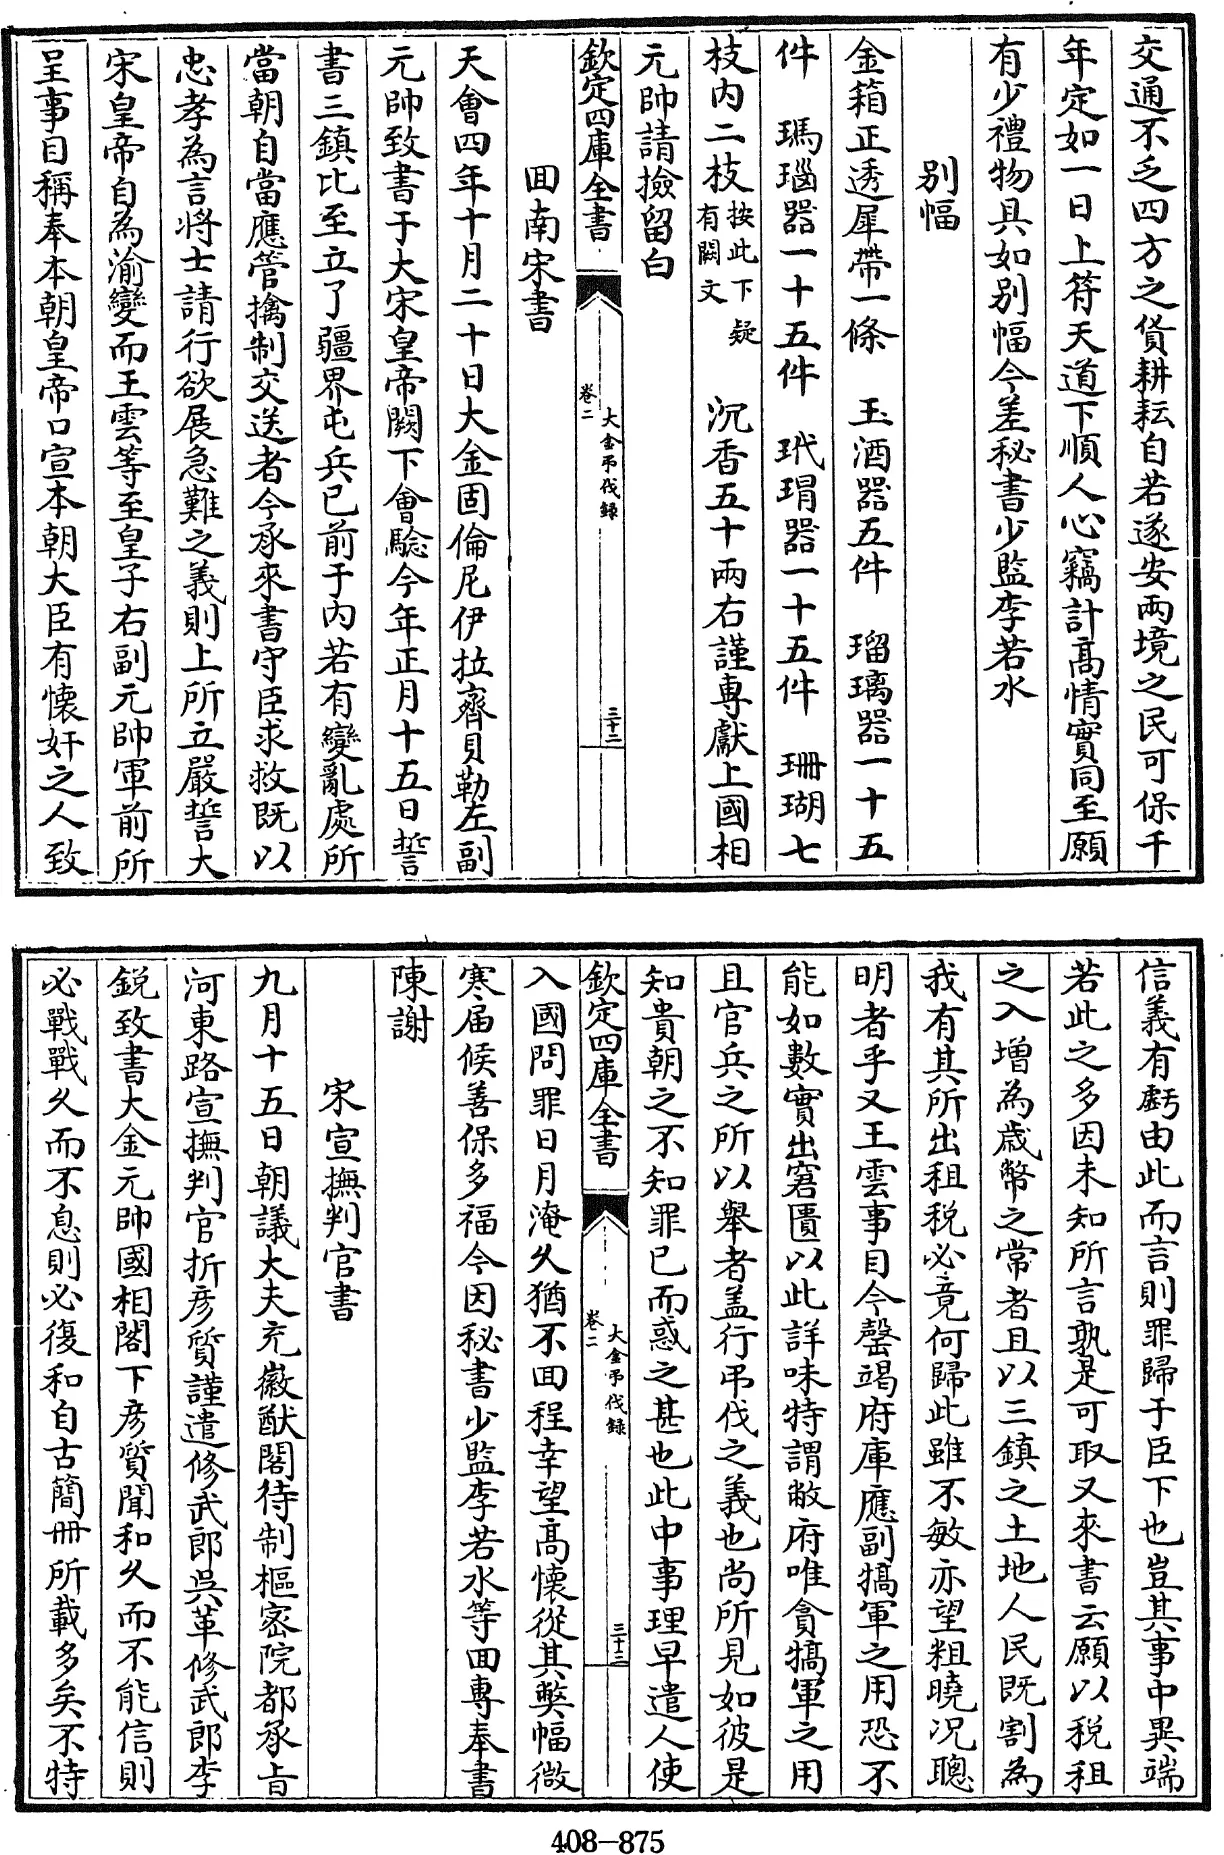 交通不乏四方之貨耕耘自若遂安兩境之民可保千
年定如一日上符天道下順人心竊計高情實同至願
有少禮物具如別幅今差秘書少監李若水
別幅
金箱正透犀帶一條 玉酒器五件 瑠璃器一十五
件 瑪瑙器一十五件 玳瑁器一十五件 珊瑚七
枝内二枝按此下疑有闕文 沉香五十兩右謹專獻上國相
元帥請撿留白
欽定四庫全書
大金弔伐録
卷二
三十二
回南宋書
天會四年十月二十日大金固倫尼伊拉齊貝勒左副
元帥致書于大宋皇帝闕下會驗今年正月十五日誓
書三鎮比至立了疆界屯兵已前于内若有變亂處所
當朝自當應管擒制交送者今承來書守臣求救既以
忠孝為言將士請行欲展急難之義則上所立嚴誓大
宋皇帝自為渝變而王雲等至皇子右副元帥軍前所
呈事目稱奉本朝皇帝口宣本朝大臣有懷奸之人致
信義有虧由此而言則罪歸于臣下也豈其事中異端
若此之多因未知所言孰是可取又來書云願以税租
之入增為歲幣之常者且以三鎮之土地人民既割為
我有其所出租税必竟何歸此雖不敏亦望粗曉況聰
明者乎又王雲事目今罄竭府庫應副犒軍之用恐不
能如數實出窘匱以此詳味特謂敝府唯貪犒軍之用
且官兵之所以舉者盖行弔伐之義也尚所見如彼是
知貴朝之不知罪已而惑之甚也此中事理早遣人使
欽定四庫全書
大金弔伐録
卷二
三十三
入國問罪日月淹久猶不回程幸望高懷從其獘幅微
寒届候善保多福今因秘書少監李若水等回專奉書
陳謝
宋宣撫判官書
九月十五日朝議大夫充徽猷閣待制樞密院都承旨
河東路宣撫判官折彦質謹遣修武郎吳革修武郎李
鋭致書大金元帥國相閣下彦質聞和久而不能信則
必戰戰久而不息則必復和自古簡冊所載多矣不特
408-875